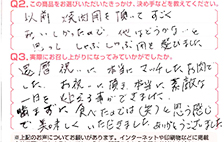 Q2. この商品をお選びいただいたきっかけ、決め手などを教えてください。
以前 焼肉用を頂いて すごく
おいしかったので、他はどうかな…と
思って しゃぶしゃぶ用を選びました。
Q3. 実際にお召し上がりになってみていかがでしたか。
還暦祝いに、本当にマッチしたお肉で
した。お祝いに頂き、本当に素敵な
一日を迎える事ができました。
食べたっ
では(笑)と思う感じ
で 美味しくいただきました ありがとうございました
※上記のお声についてお断りなく、インターネットや印刷物などに掲載